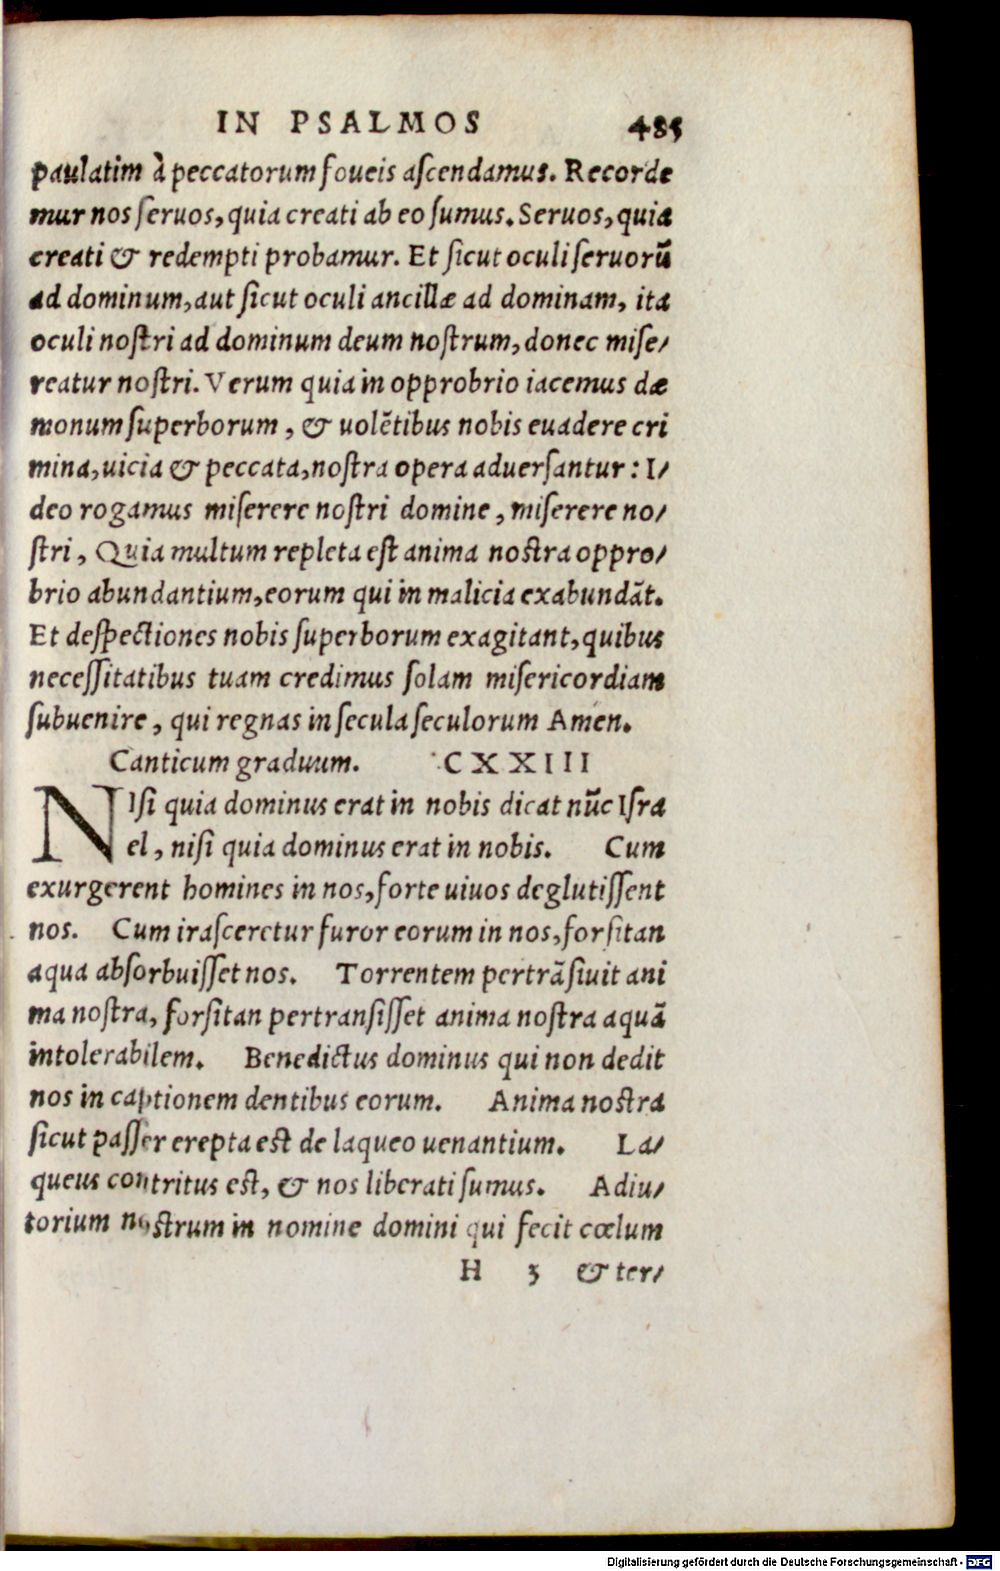 IN PSALMOS 485
paulatim à peccatorum foueis aſcendamus. Recorde
mur nos ſeruos, quia creati ab eo ſumus. Seruos, quia
creati & redempti probamur. Et ſicut oculi ſeruorū
ad dominum, aut ſicut oculi ancillæ ad dominam, ita
oculi noſtri ad dominum deum noſtrum, donec miſe/
reatur noſtri. Verum quia in opprobrio iacemus dæ
monum ſuperborum, & uolētibus nobis euadere cri
mina, uicia & peccata, noſtra opera aduerſantur: I/
deo rogamus miſerere noſtri domine, miſerere no/
ſtri, Quia multum repleta eſt anima noſtra oppro/
brio abundantium, eorum qui in malicia exabundāt.
Et deſpectiones nobis ſuperborum exagitant, quibus
neceſſitatibus tuam credimus ſolam miſericordiam
ſubuenire, qui regnas in ſecula ſeculorum Amen.
Canticum graduum. CXXIII
NIſi quia dominus erat in nobis dicat nūc Iſra
el, niſi quia dominus erat in nobis. Cum
exurgerent homines in nos, forte uiuos deglutiſſent
nos. Cum iraſceretur furor eorum in nos, forſitan
aqua abſorbuiſſet nos. Torrentem pertrāſiuit ani
ma noſtra, forſitan pertranſiſſet anima noſtra aquā
intolerabilem. Benedictus dominus qui non dedit
nos in captionem dentibus eorum. Anima noſtra
ſicut paſſer erepta eſt de laqueo uenantium. La/
queus contritus eſt, & nos liberati ſumus. Adiu/
torium noſtrum in nomine domini qui fecit cœlum
H 3 & ter/
Digitalisierung gefördert durch die Deutsche Forschungsgemeinschaft - DFG